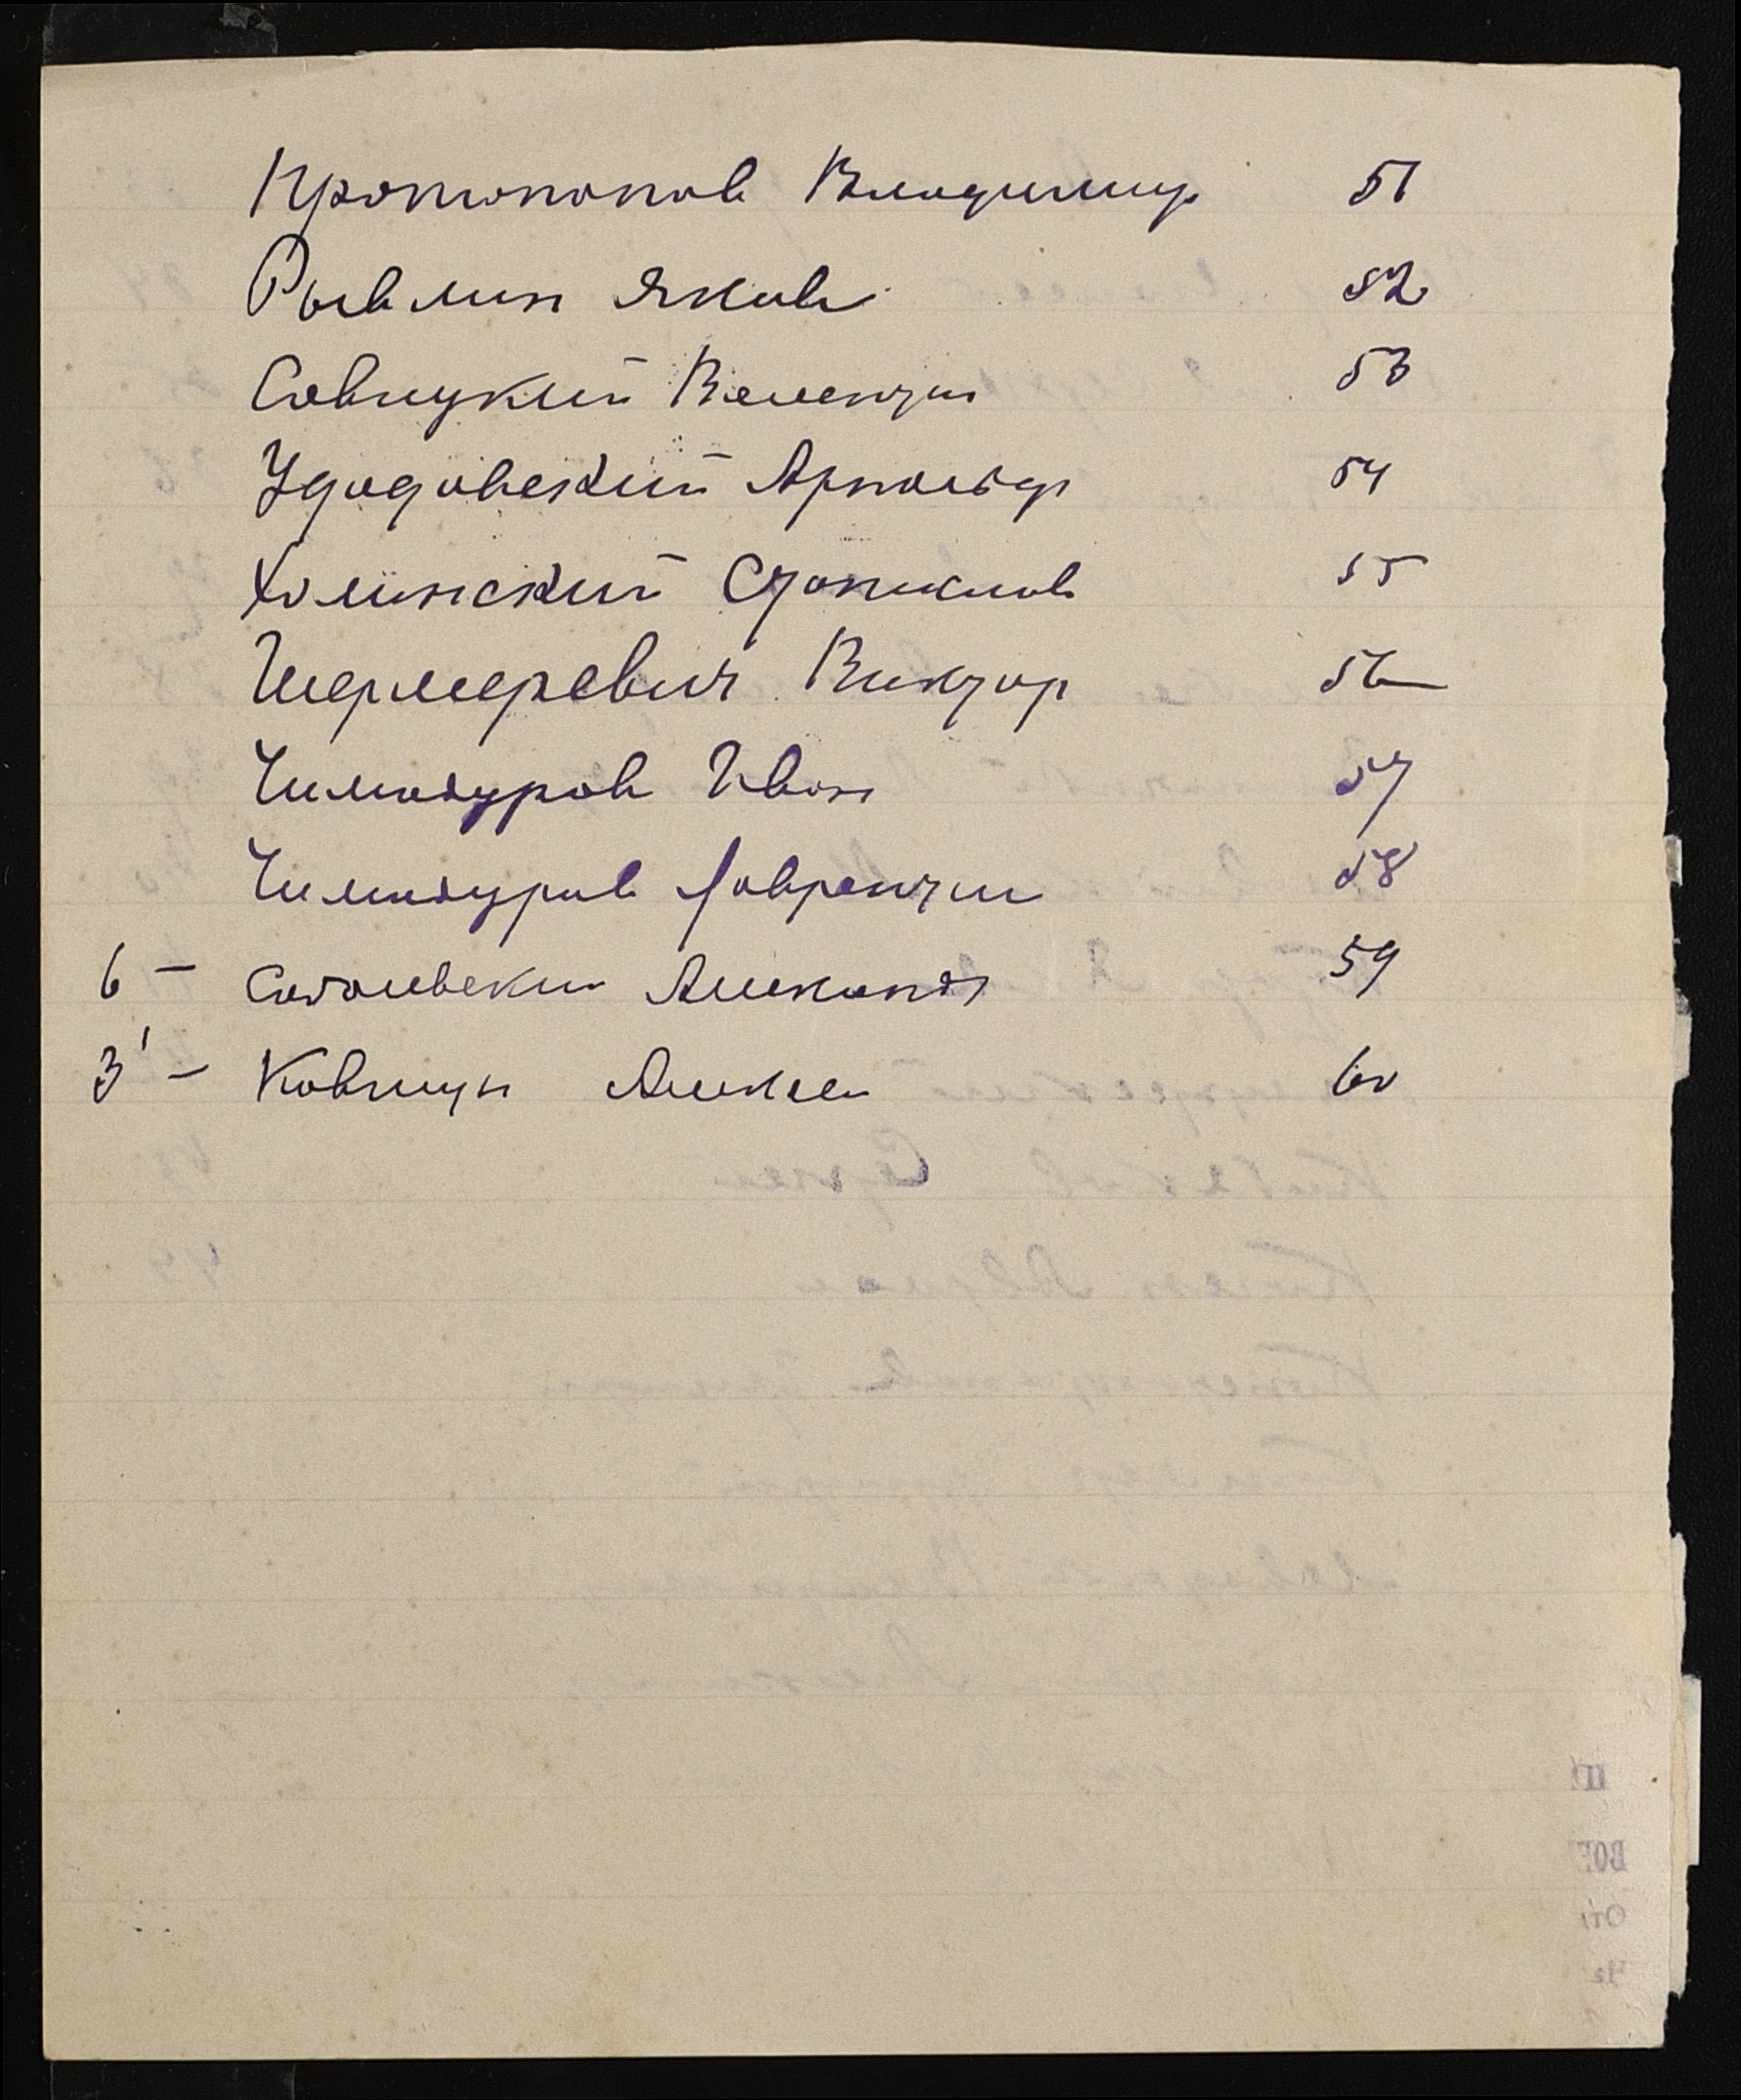 Протопопов Владимир 51
Рывлин Яков 52
Савицкий Валентин 53
Удодовский Арнольд 54
Холинский Станислав 55
Шермеревич Виктор 56
Чимбуров Иван 57
Чимбуров Лаврентий 58
6 - Соболевский Александр 59
3 - Ковшун Алексей 60